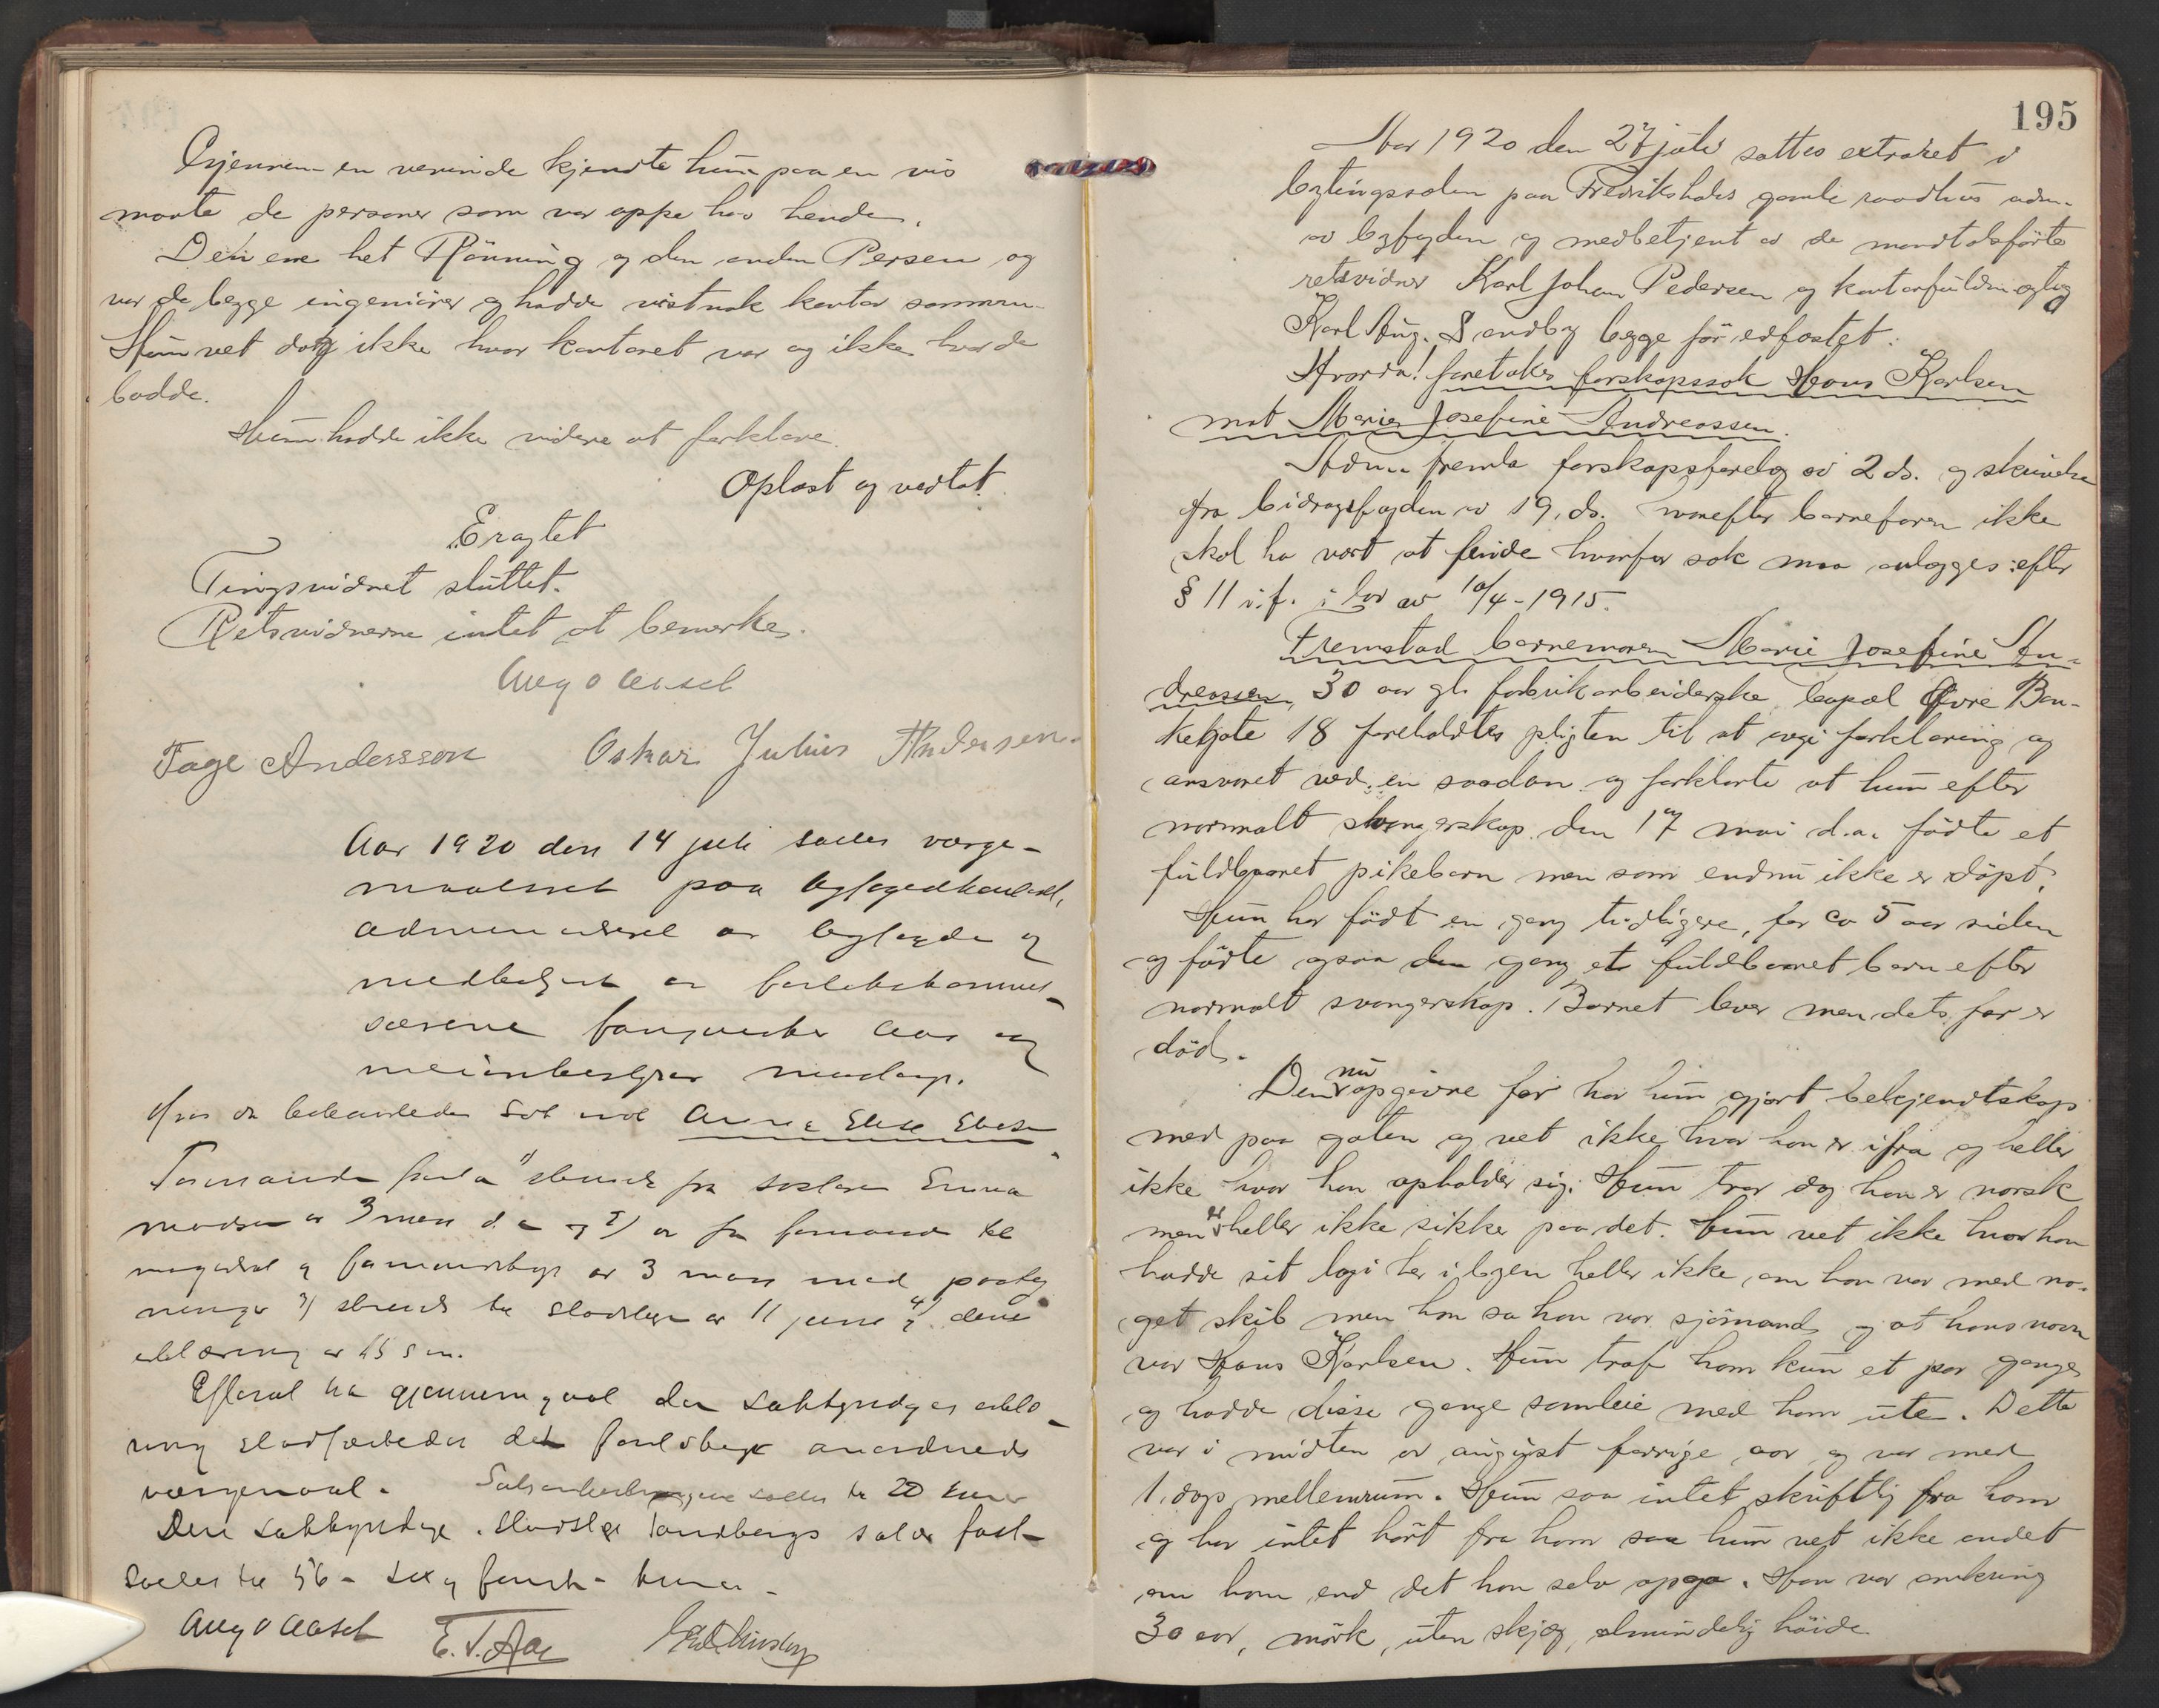 Gjennem en veninde kjendte hun paa en vis
maate de personer som var oppe hos hende.
Den ene het Rönning og den anden Persen og
var de begge ingeniörer og hadde vistnok kontor sammen
Hun vet dog ikke hvor kontoret var og ikke hvor de
bodde.
Hun hadde ikke videre at forklare.
Oplæst og vedtat.
Eragtet
Tingsvidnet sluttet.
Retsvidnerne intet at bemerke.
Aug O Aaset
Tage Andersson Oskar Julius Andersen.
Aar 1920 den 14 juli sattes værge-
maalsret paa byfogedkontoret,
administreret av byfogden og
medbetjent av
Aas og
Hvor da behandledes sak mot Anna Elise
fra Emma
av 3 mars d.a og 2) av fra formand til
av 3 mars med paateg
ninger 3) til stadslægen av 11 juni og 4) denne
erklæring av 15 s.m.
Efterat ha gjennemgaat den sakkyndiges erklæ-
ring stadfæstedes det forelöbige anordnede
værgemaal. Saksomkostningene sattes til 20 kroner
Den sakkyndige, stadslæge Tandbergs salær fast-
sattes til 56 - sex og femti - kroner -
Aug O Aaset E. T. Aas
195
Aar 1920 den 27 juli sattes extraret i
bytingssalen paa Fredrikshalds gamle raadhus adm.
av byfogden og medbetjent av de mandtalsförte
retsvidner Karl Johan Pedersen og kontorfuldmægtig
Karl Aug. Sandby begge för edfæstet.
Hvorda! foretokes farskapssak Hans Karlsen
mot Marie Josefine Andreassen.
Adm. fremla farskapsforelæg av 2 ds. og skrivelse
fra bidragsfogden av 19. ds. hvorefter barnefaren ikke
skal ha vært at finde hvorfor sak maa anlægges efter
§ 11 i.f. i lov av 10/4-1915.
Fremstod barnemoren Marie Josefine An-
dreassen, 30 aar gl. fabrikarbeiderske, bopæl Övre Ban-
ketgate 18 foreholdtes pligten til at avgi forklaring og
ansvaret ved en saadan og forklarte at hun efter
normalt svangerskap den 17 mai d.a. födte et
fuldbaaret pikebarn men som endnu ikke er döpt.
Hun har födt en gang tidligere, for ca 5 aar siden
og födte ogsaa den gang et fuldbaaret barn efter
normalt svangerskap. Barnet lever men dets far er
död.
Den nu opgivne far har hun gjort bekjendtskap
med paa gaten og vet ikke hvor han er ifra og heller
ikke hvor han opholder sig. Hun tror dog han er norsk
men er heller ikke sikker paa det. Hun vet ikke hvor han
hadde sit logi her i byen heller ikke, om han var med no-
get skib men han sa han var sjömand og at hans navn
var Hans Karlsen. Hun traf ham kun et par ganger
og hadde disse gange samleie med ham ute. Dette
var i midten av august forrige aar og var med
1. dags mellemrum. Hun saa intet skriftlig fra ham
og har intet hört fra ham saa hun vet ikke andet
om ham end det han selv opga. Han var omkring
30 aar, mörk, uten skjæg, almindelig höide